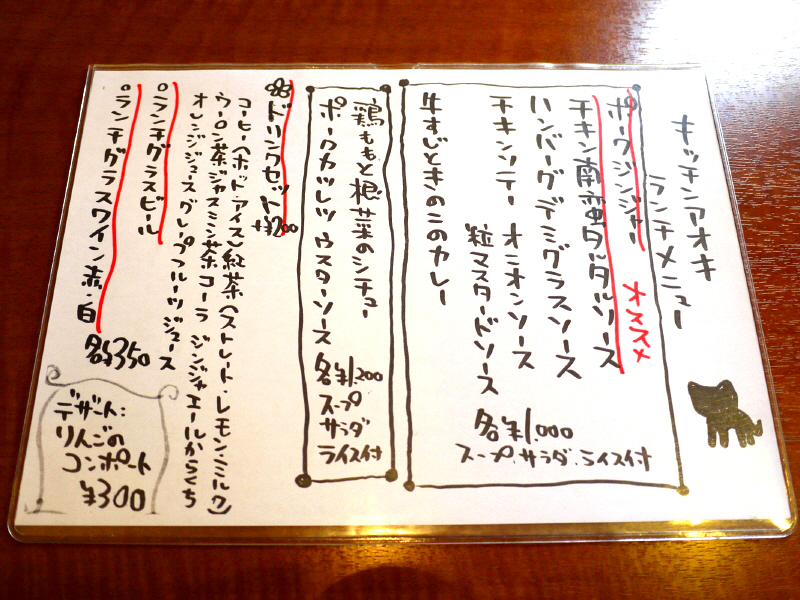 キッチンアオキ
ランチメニュー
ポークジンジャー オススメ
チキン南蛮タルタルソース
ハンバーグデミグラスソース
チキンソテー オニオンソース
粒マスタードソース
牛すじときのこのカレー
各¥1,000
スープ、サラダ、ライス付
鶏ももと根菜のシチュー
ポークカツレツ ウスターソース
各¥1,200
スープ
サラダ
ライス付
ドリンクセット +¥200
コーヒー(ホット・アイス)紅茶(ストレート・レモン・ミルク)
ウーロン茶 ジャスミン茶 コーラ ジンジャエールからくち
オレンジジュース グレープフルーツジュース
○ランチグラスビール
○ランチグラスワイン赤・白
各¥350
デザート:
りんごの
コンポート
¥300